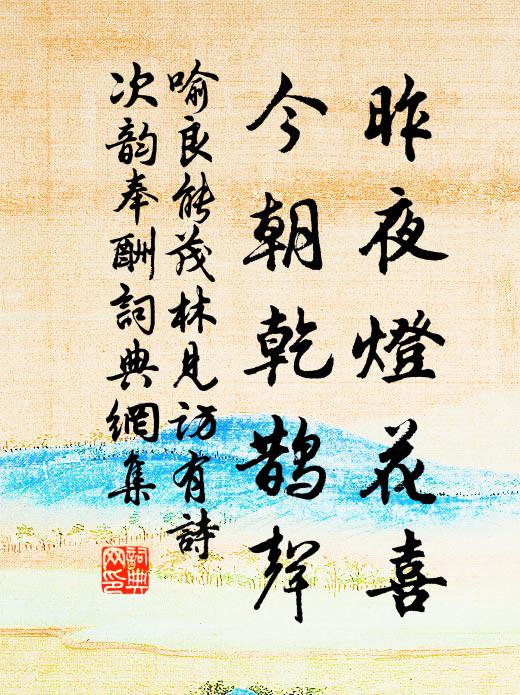 昨夜燈花喜
今朝乾鵲聲
喻良能茂林見訪有詩
次韵奉酬詞典網集
詞典网印